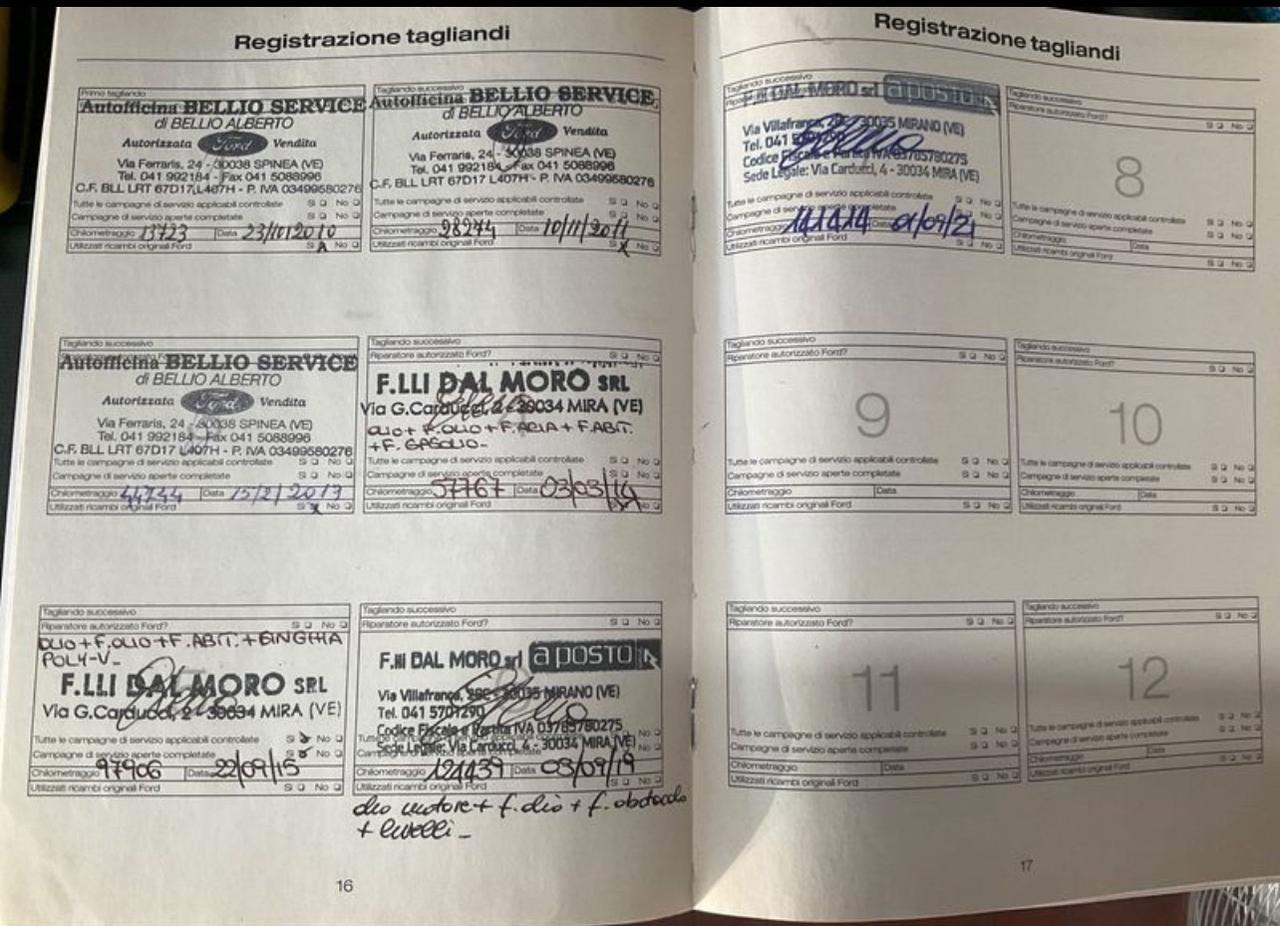 Registrazione tagliandi
Primo tagliando
Autofficina BELLIO SERVICE
di BELLIO ALBERTO
Autorizzata Ford Vendita
Via Ferraris, 24 - 30038 SPINEA (VE)
Tel. 041 992184 - Fax 041 5088996
C.F. BLL LRT 67D17 L407H - P. IVA 03499580276
Tutte le campagne di servizio applicabili controllate Sì No
Campagne di servizio aperte completate Sì No
Chilometraggio 13723 Data 23/10/2010
Utilizzati ricambi originali Ford Sì No
Tagliando successivo
Autofficina BELLIO SERVICE
di BELLIO ALBERTO
Autorizzata Ford Vendita
Via Ferraris, 24 - 30038 SPINEA (VE)
Tel. 041 992184 - Fax 041 5088996
C.F. BLL LRT 67D17 L407H - P. IVA 03499580276
Tutte le campagne di servizio applicabili controllate Sì No
Campagne di servizio aperte completate Sì No
Chilometraggio 28244 Data 10/11/2011
Utilizzati ricambi originali Ford Sì No
Tagliando successivo
Autofficina BELLIO SERVICE
di BELLIO ALBERTO
Autorizzata Ford Vendita
Via Ferraris, 24 - 30038 SPINEA (VE)
Tel. 041 992184 - Fax 041 5088996
C.F. BLL LRT 67D17 L407H - P. IVA 03499580276
Tutte le campagne di servizio applicabili controllate Sì No
Campagne di servizio aperte completate Sì No
Chilometraggio 44244 Data 15/2/2013
Utilizzati ricambi originali Ford Sì No
Tagliando successivo
Riparatore autorizzato Ford? Sì No
F.LLI DAL MORO SRL
Via G.Carducci, 2 - 30034 MIRA (VE)
OLIO + F.OLIO + F.ARIA + F.ABIT.
+F. GASOLIO-
Tutte le campagne di servizio applicabili controllate Sì No
Campagne di servizio aperte completate Sì No
Chilometraggio 57767 Data 03/03/14
Utilizzati ricambi originali Ford Sì No
Tagliando successivo
Riparatore autorizzato Ford? Sì No
OLIO + F.OLIO + F. ABIT. + CINGHIA
POLY-V-
F.LLI DAL MORO SRL
Via G.Carducci, 2 - 30034 MIRA (VE)
Tutte le campagne di servizio applicabili controllate Sì No
Campagne di servizio aperte completate Sì No
Chilometraggio 97906 Data 22/09/15
Utilizzati ricambi originali Ford Sì No
Tagliando successivo
Riparatore autorizzato Ford? Sì No
F.lli DAL MORO srl a POSTO
Via Villafranca, 30035 MIRANO (VE)
Tel. 041 5701290
Codice Fiscale e Partita IVA 03785780275
Sede Legale: Via Carducci, 4 - 30034 MIRA (VE)
Chilometraggio 121439 Data 03/09/19
Utilizzati ricambi originali Ford Sì No
olio motore + f. olio + f. abitacolo
+ livelli -
16
Registrazione tagliandi
Tagliando successivo
F.lli DAL MORO srl a POSTO
Via Villafranca, 30035 MIRANO (VE)
Tel. 041
Codice Fiscale e Partita IVA 03785780275
Sede Legale: Via Carducci, 4 - 30034 MIRA (VE)
Tutte le campagne di servizio applicabili controllate
Campagne di servizio aperte completate Sì No
Chilometraggio 141414 Data 01/09/21
Utilizzati ricambi originali Ford Sì No
Tagliando successivo
Riparatore autorizzato Ford? Sì No
8
Tutte le campagne di servizio applicabili controllate Sì No
Campagne di servizio aperte completate Sì No
Chilometraggio Data
Utilizzati ricambi originali Ford Sì No
Tagliando successivo
Riparatore autorizzato Ford? Sì No
9
Tutte le campagne di servizio applicabili controllate Sì No
Campagne di servizio aperte completate Sì No
Chilometraggio Data
Utilizzati ricambi originali Ford Sì No
Tagliando successivo
Riparatore autorizzato Ford? Sì No
10
Tutte le campagne di servizio applicabili controllate Sì No
Campagne di servizio aperte completate Sì No
Chilometraggio Data
Utilizzati ricambi originali Ford Sì No
Tagliando successivo
Riparatore autorizzato Ford? Sì No
11
Tutte le campagne di servizio applicabili controllate Sì No
Campagne di servizio aperte completate Sì No
Chilometraggio Data
Utilizzati ricambi originali Ford Sì No
Tagliando successivo
Riparatore autorizzato Ford? Sì No
12
Tutte le campagne di servizio applicabili controllate Sì No
Campagne di servizio aperte completate Sì No
Chilometraggio Data
Utilizzati ricambi originali Ford Sì No
17